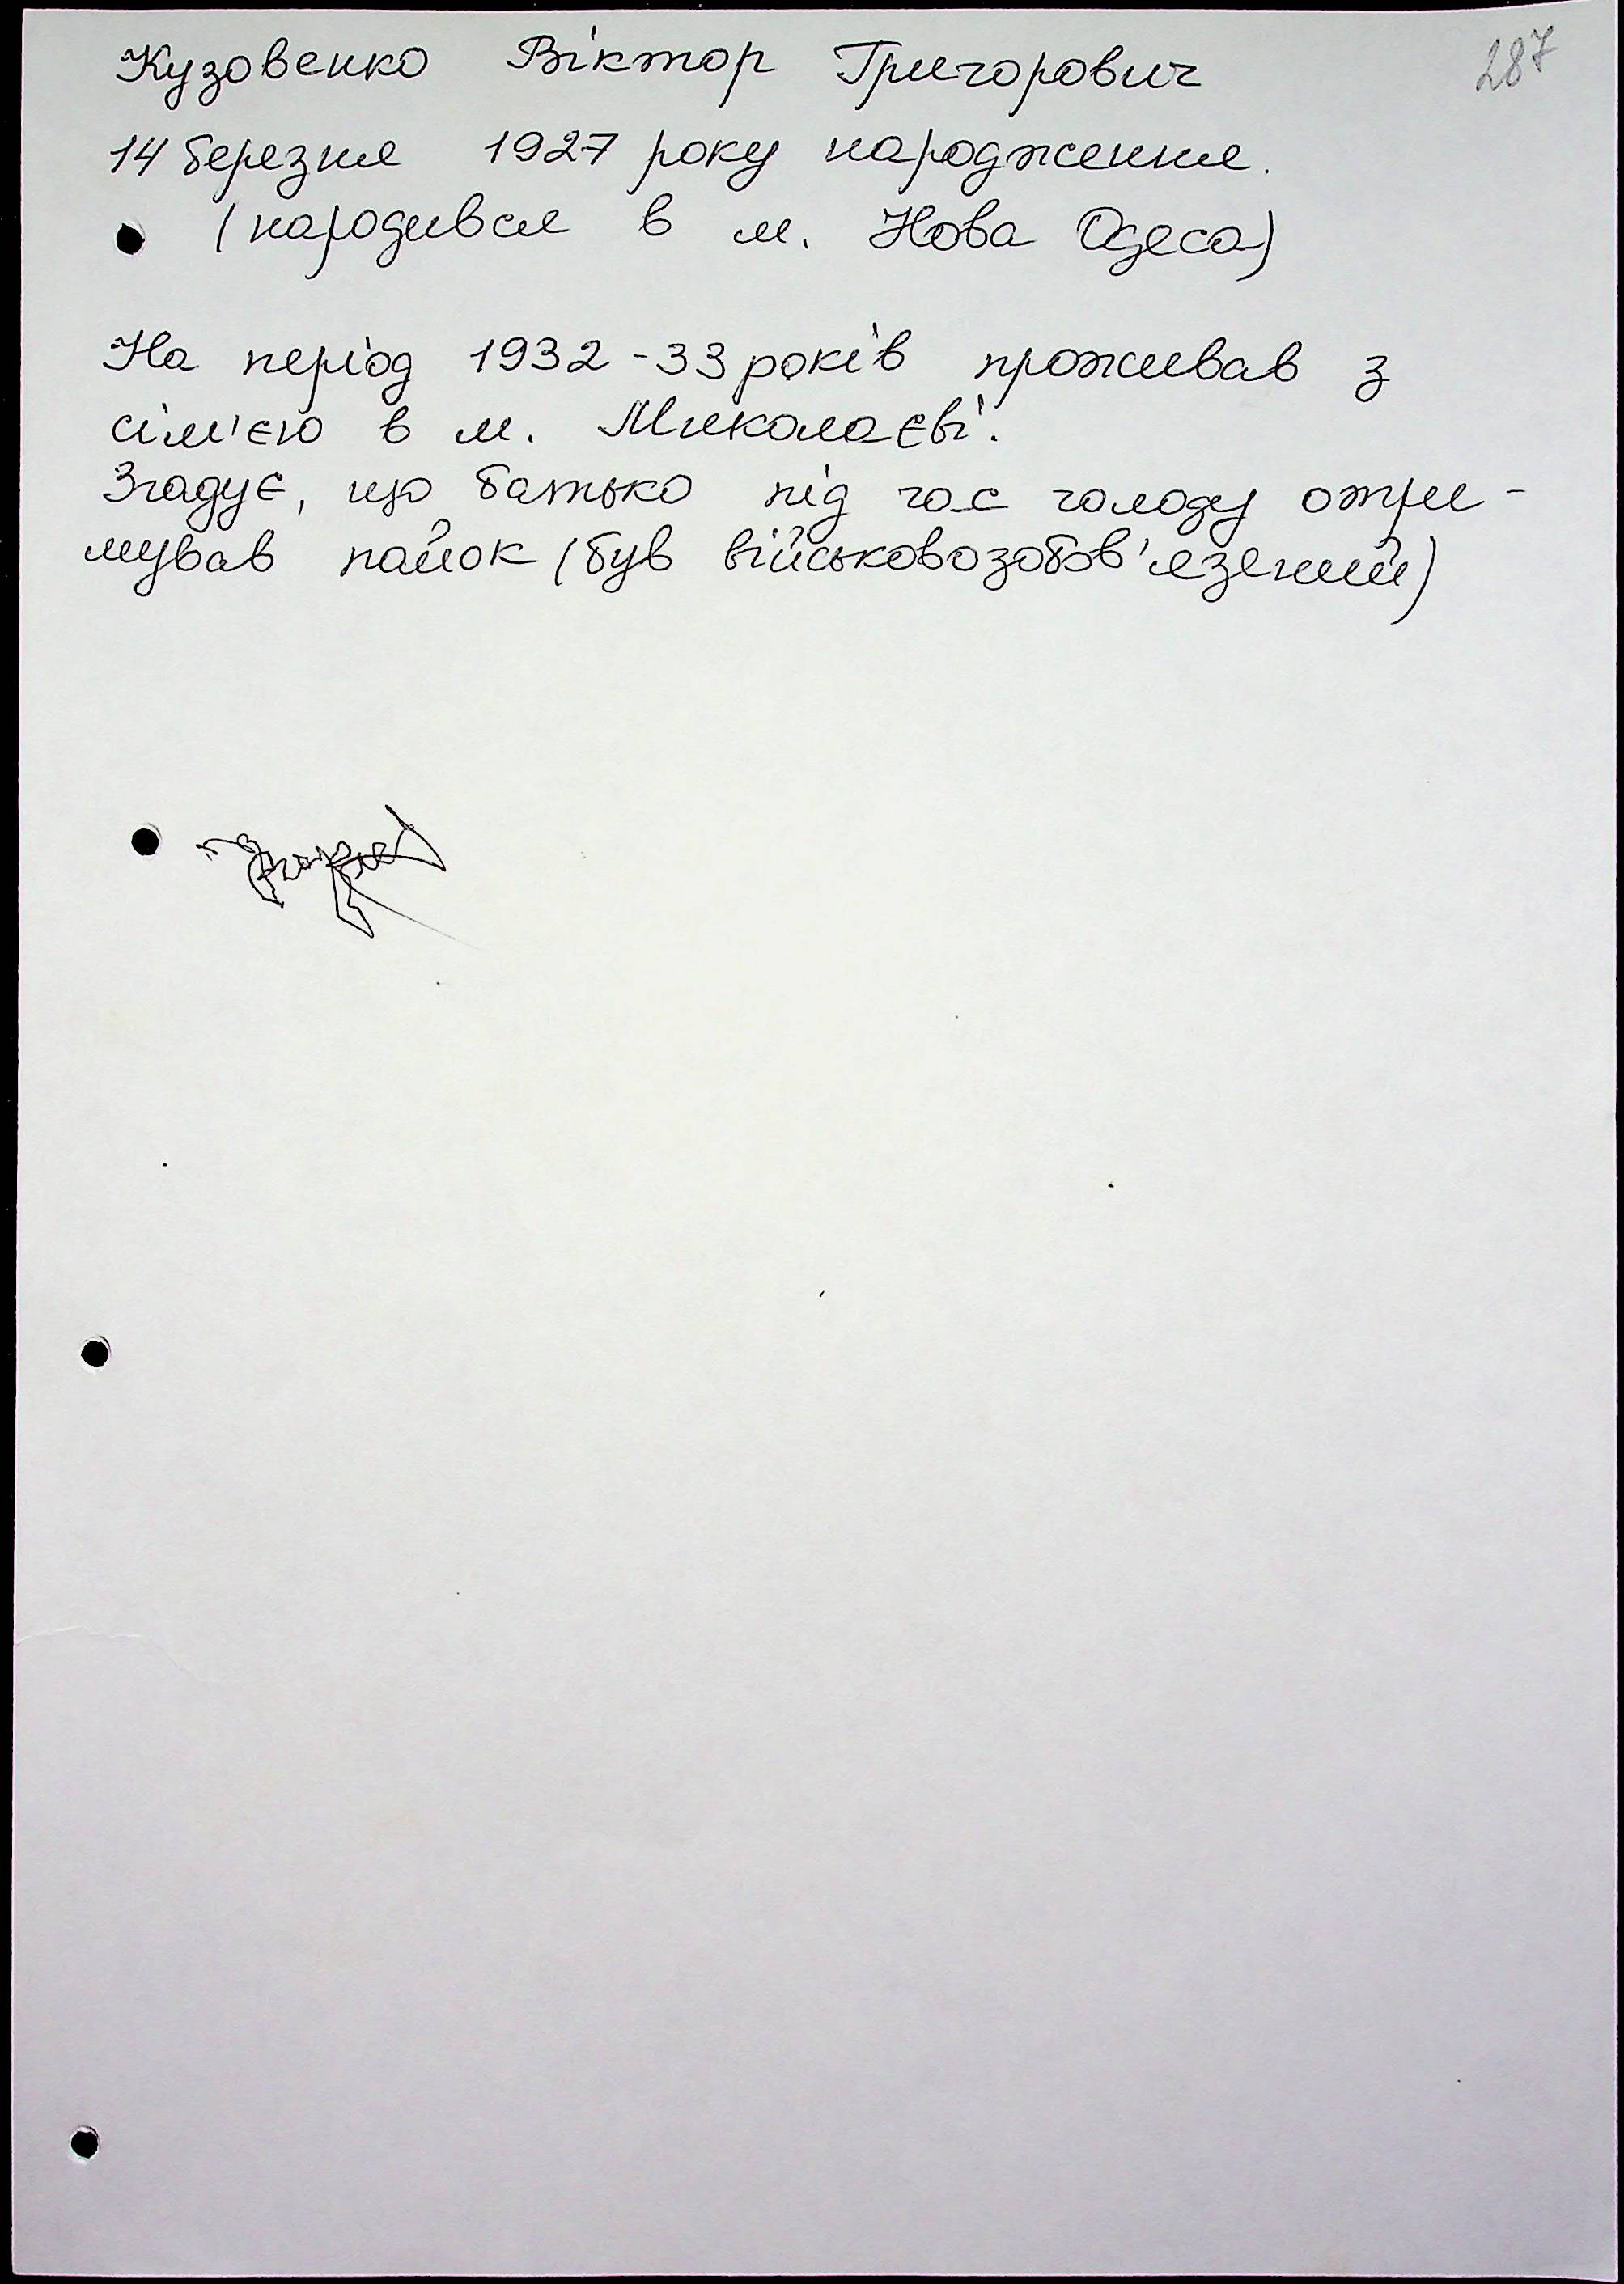 287
Кузовенко Віктор Григорович
14 березня 1927 року народження.
(народився в м. Нова Одеса)
На період 1932-33 років проживав з
сім'єю в м. Миколаєві.
Згадує, що батько під час голоду отри-
мував пайок (був військовозобов'язаний)